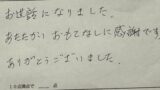 お世話になりました。
あたたかい おもてなしに感謝です
ありがとうございました。